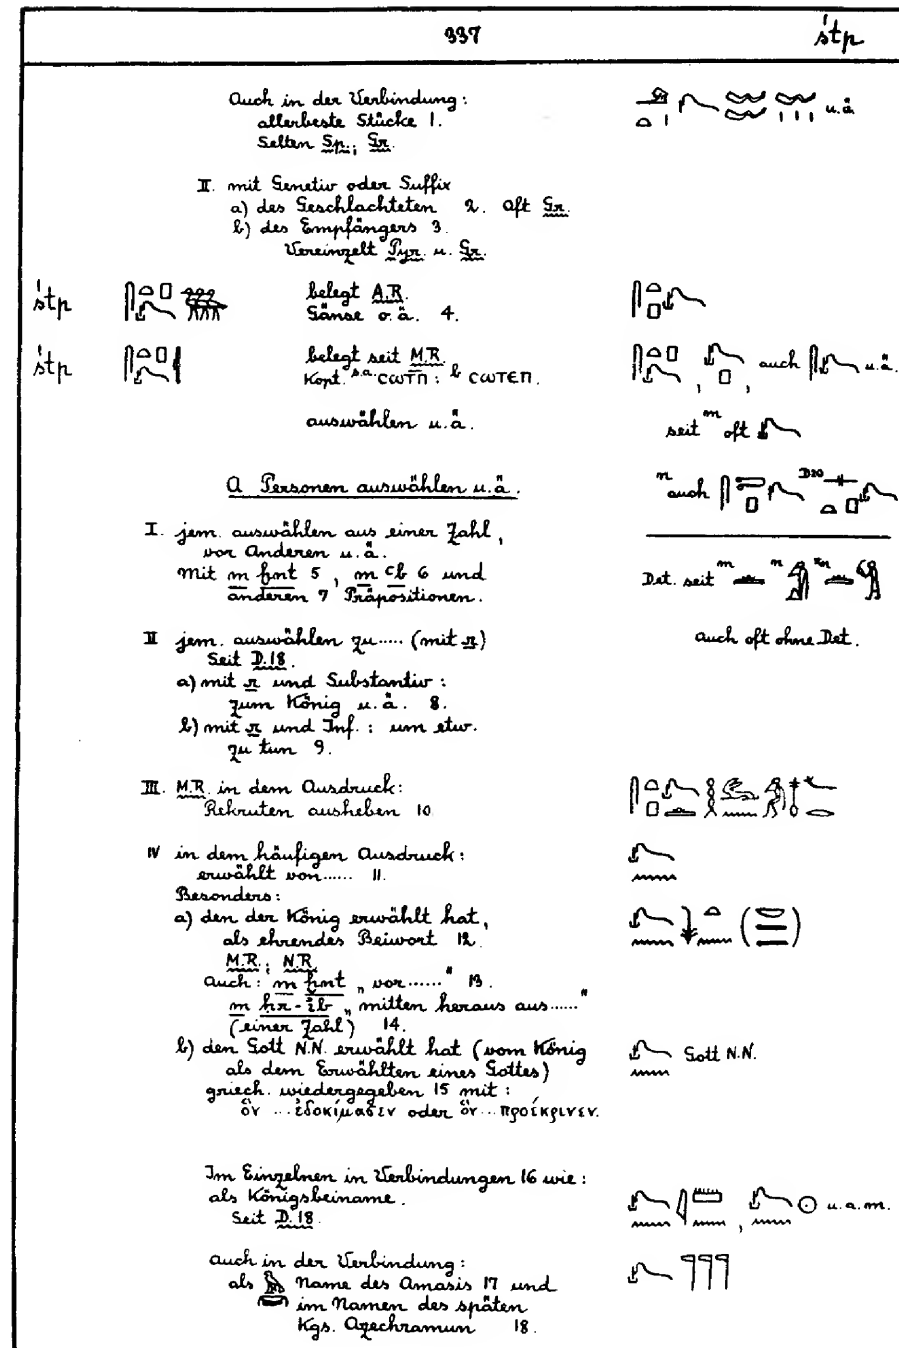 337 śtp
Auch in der Verbindung:
allerbeste Stücke 1. u.ä
Selten Sp.; Gr.
II. mit Genetiv oder Suffix
a) des Geschlachteten 2. Oft Gr.
b) des Empfängers 3.
Vereinzelt Pyr. u. Gr.
śtp belegt A.R.
Gänse o.ä. 4.
śtp belegt seit M.R.
Kopt. s.a. ⲥⲱⲧⲡ : b ⲥⲱⲧⲉⲡ. , , auch u.ä.
auswählen u.ä. seit m oft
A Personen auswählen u.ä. n auch D20
I. jem. auswählen aus einer Zahl,
vor Anderen u.ä.
Mit m ḫnt 5, m ꜥb 6 und
anderen 7 Präpositionen. Det. seit m n
II jem. auswählen zu..... (mit r) auch oft ohne Det.
Seit D.18.
a) mit r und Substantiv:
zum König u.ä. 8.
b) mit r und Inf.: um etw.
zu tun 9.
III. M.R. in dem Ausdruck:
Rekruten ausheben 10
IV in dem häufigen Ausdruck:
erwählt von...... 11.
Besonders:
a) den der König erwählt hat, ( )
als ehrendes Beiwort 12.
M.R.; N.R.
Auch: m ḫnt „vor......" 13.
m ḥr-ib „mitten heraus aus......"
(einer Zahl) 14.
b) den Gott N.N. erwählt hat (vom König Gott N.N.
als dem Erwählten eines Gottes)
griech. wiedergegeben 15 mit:
ὃν ... ἐδοκίμασεν oder ὃν ... προέκρινεν.
Im Einzelnen in Verbindungen 16 wie:
als Königsbeiname. , u.a.m.
Seit D.18.
Auch in der Verbindung:
als Name des Amasis 17 und
im Namen des späten
Kgs. Azechramun 18.